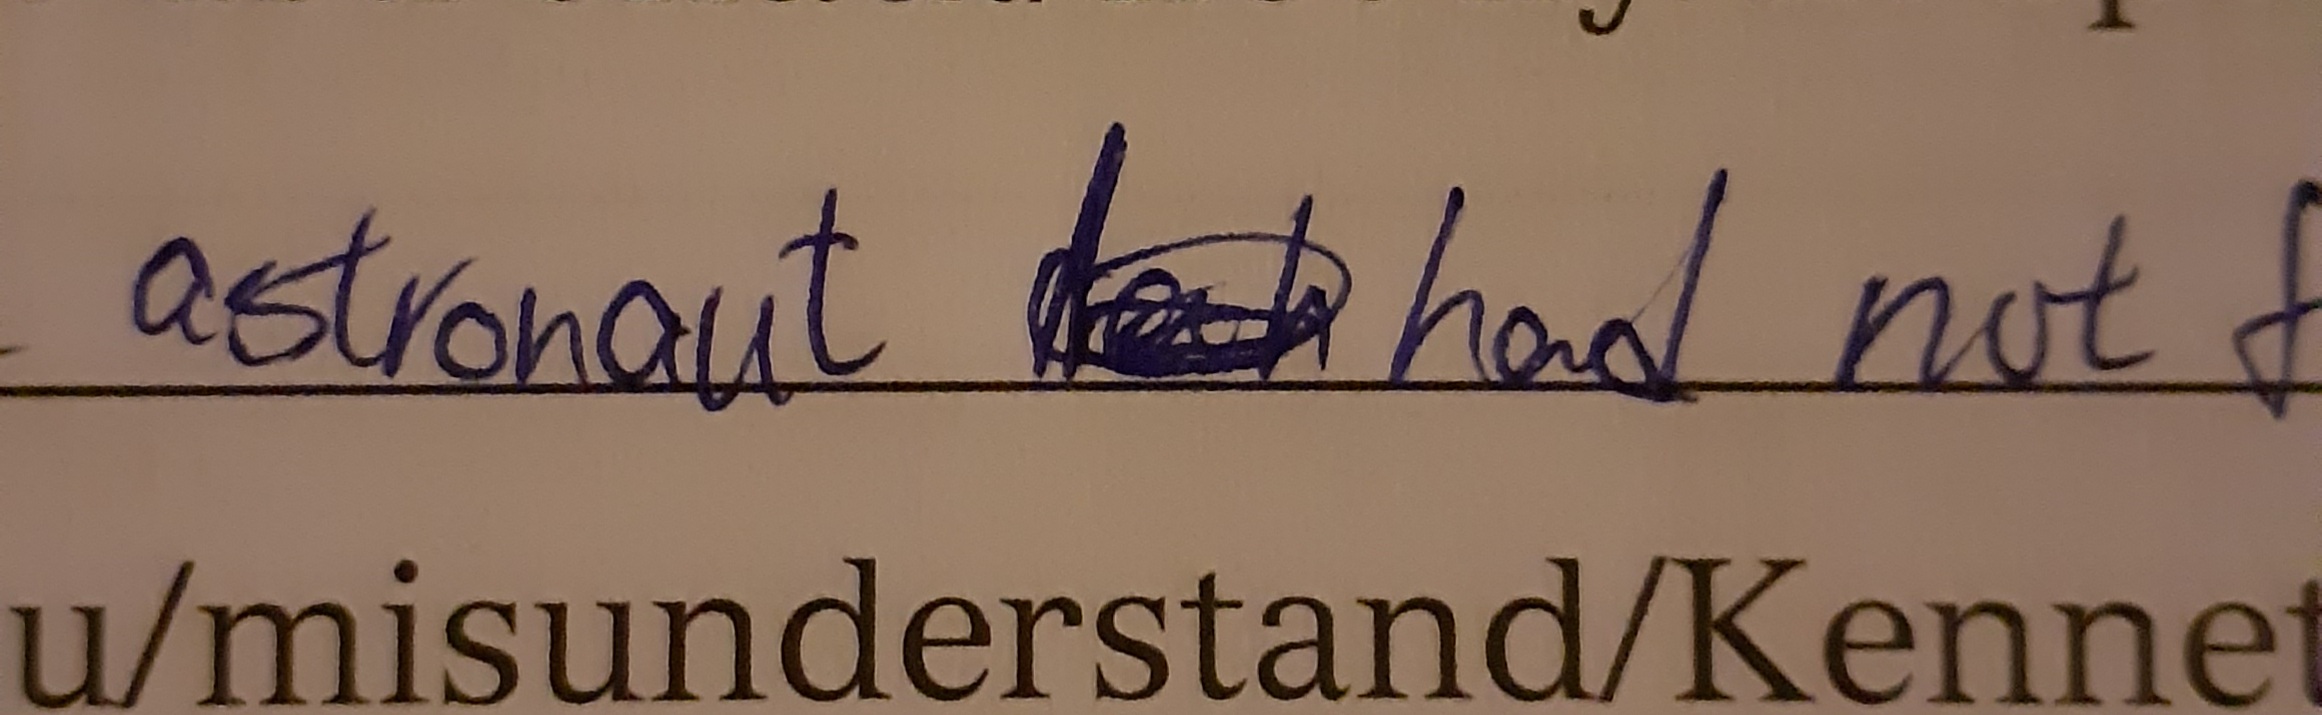 astronaut had not f
u/misunderstand/Kennet